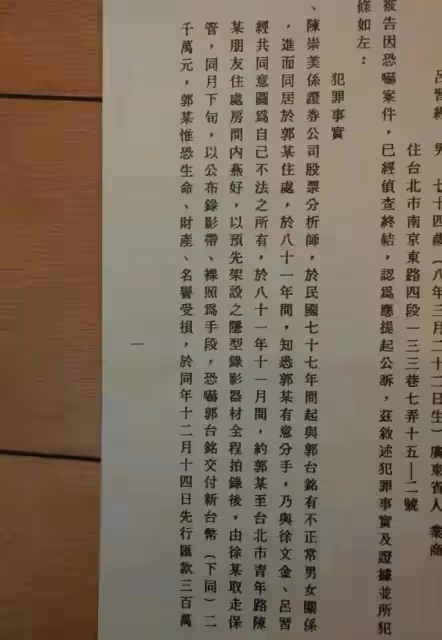 呂習經　男　七十四歲（八年三月二十二日生）廣東省人　業商
住台北市南京東路四段一三三巷七弄十五—二號
被告因恐嚇案件，已經偵查終結，認為應提起公訴，茲敘述犯罪事實及證據並所犯
條如左：
犯罪事實
、陳崇美係證券公司股票分析師，於民國七十七年間起與郭台銘有不正常男女關係
，進而同居於郭某住處，於八十一年間，知悉郭某有意分手，乃與徐文金、呂習
經共同意圖爲自己不法之所有，於八十一年十一月間，約郭某至台北市青年路陳
某朋友住處房間內燕好，以預先架設之隱型錄影器材全程拍錄後，由徐某取走保
管，同月下旬，以公布錄影帶、裸照爲手段，恐嚇郭台銘交付新台幣（下同）二
千萬元，郭某惟恐生命、財產、名譽受損，於同年十二月十四日先行匯款三百萬
一